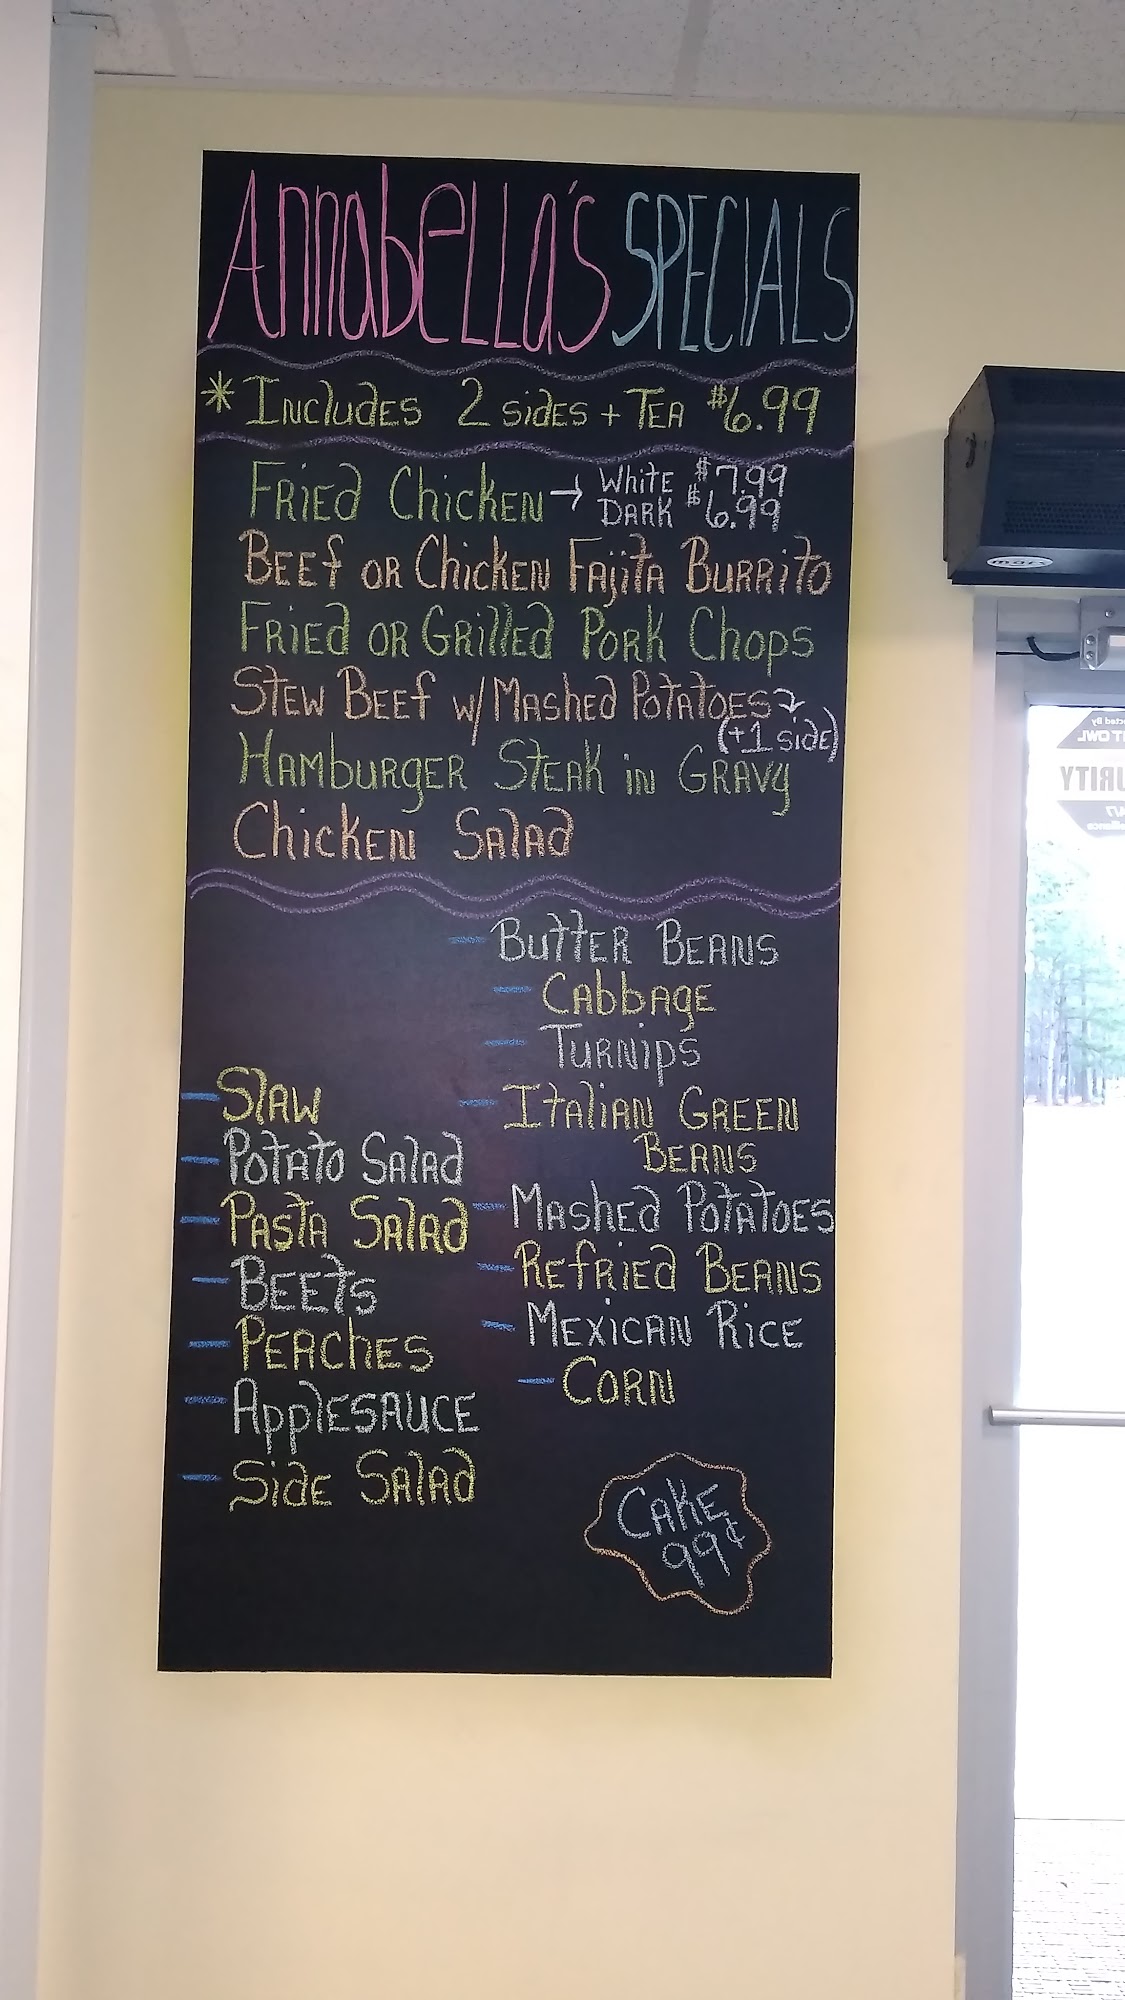 Annabella's Specials
* Includes 2 sides + Tea $6.99
Fried Chicken → White $7.99
Dark $6.99
Beef or Chicken Fajita Burrito
Fried or Grilled Pork Chops
Stew Beef w/ Mashed Potatoes
(+1 side)
Hamburger Steak in Gravy
Chicken Salad
- Slaw
- Potato Salad
- Pasta Salad
- Beets
- Peaches
- Applesauce
- Side Salad
- Butter Beans
- Cabbage
- Turnips
- Italian Green
Beans
- Mashed Potatoes
- Refried Beans
- Mexican Rice
- Corn
Cake
99¢
mars